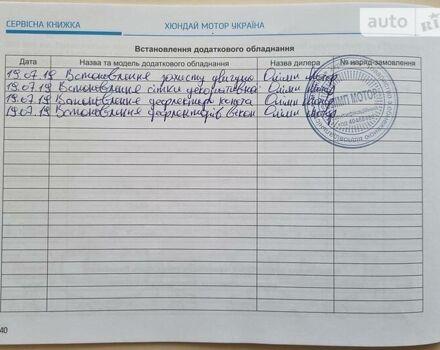 СЕРВІСНА КНИЖКА ХЮНДАЙ МОТОР УКРАЇНА
auto RIA
Встановлення додаткового обладнання
Дата Назва та модель додаткового обладнання Назва дилера № наряд-замовлення
19.07.19 Встановлення захисту двигуна Олімп Мотор
19.07.19 Встановлення сітки декоративної Олімп Мотор
19.07.19 Встановлення дефлектора капота Олімп Мотор
19.07.19 Встановлення дефлекторів вікон Олімп Мотор
ОЛІМП МОТОР
40